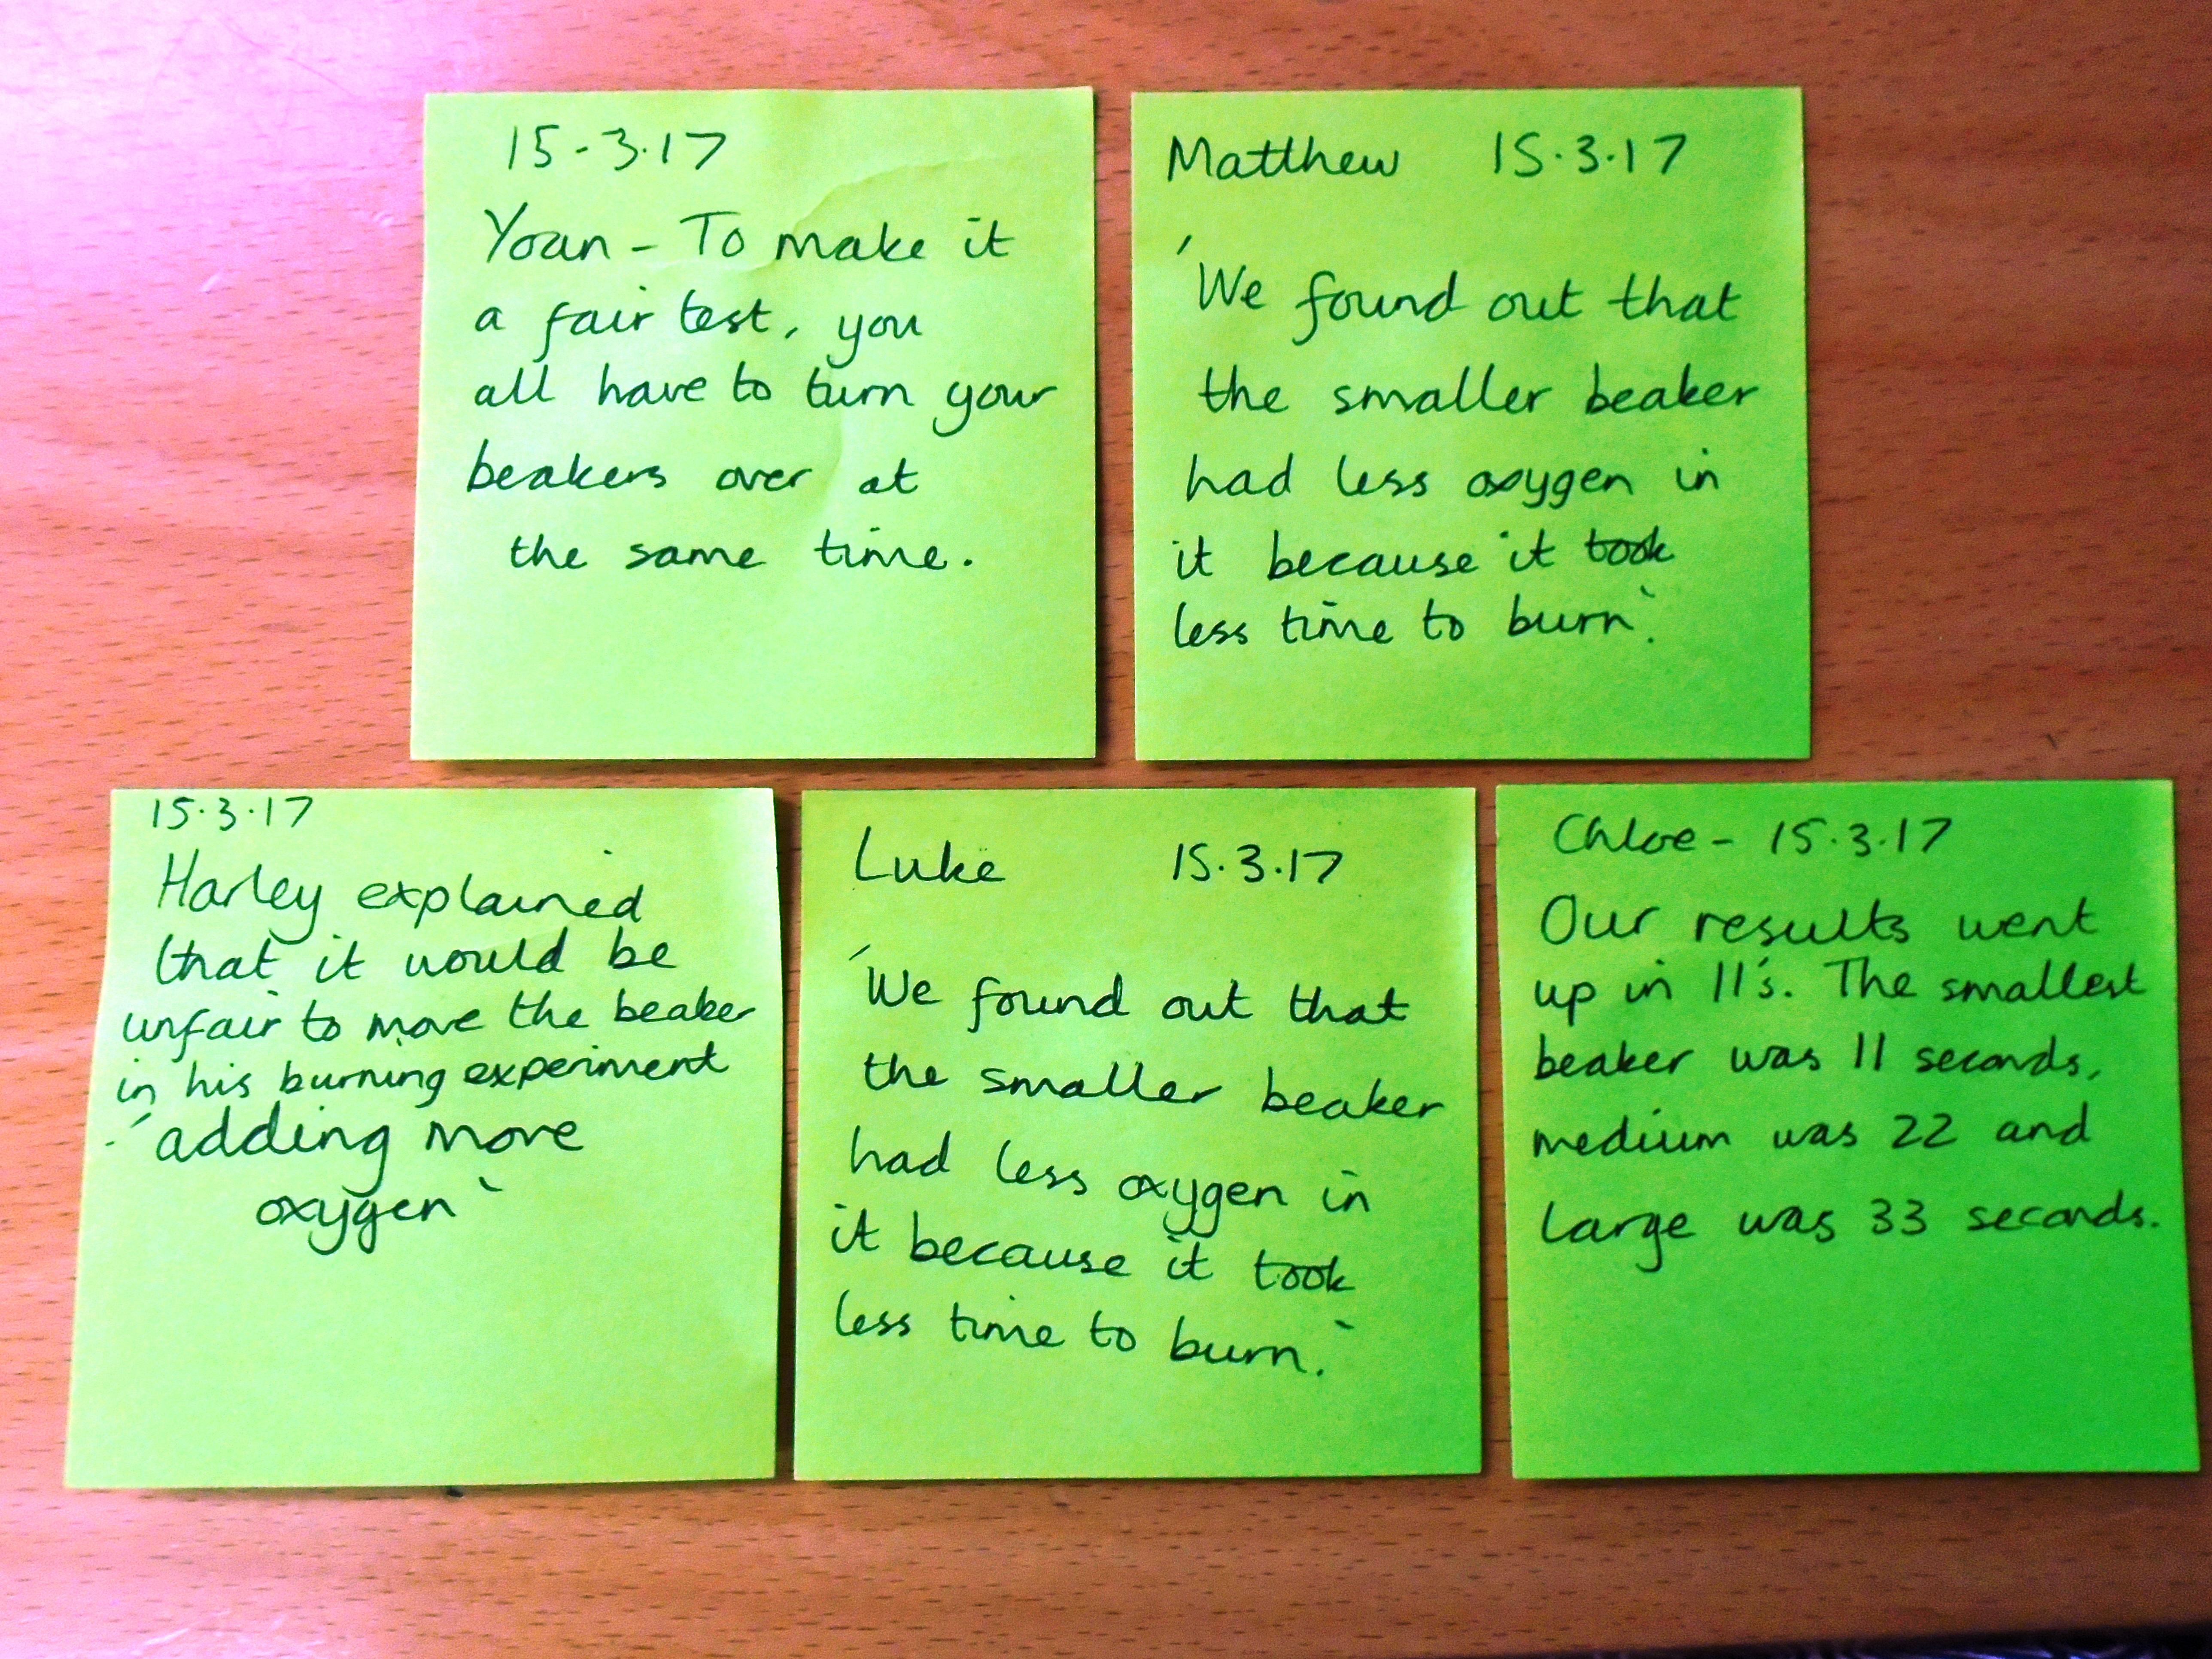 15-3.17
Yoan - To make it
a fair test, you
all have to turn your
beakers over at
the same time.
Matthew 15.3.17
'We found out that
the smaller beaker
had less oxygen in
it because it took
less time to burn.'
15.3.17
Harley explained
that it would be
unfair to move the beaker
in his burning experiment
- 'adding more
oxygen'
Luke 15.3.17
'We found out that
the smaller beaker
had less oxygen in
it because it took
less time to burn.'
Chloe - 15.3.17
Our results went
up in 11's. The smallest
beaker was 11 seconds,
medium was 22 and
large was 33 seconds.